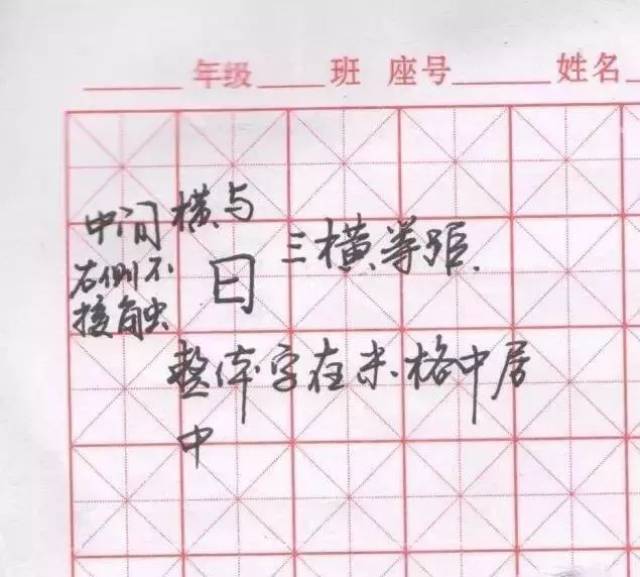 年级 班 座号 姓名
中间横与
右侧不
接触
日
三横等距.
整体字在米格中居
中